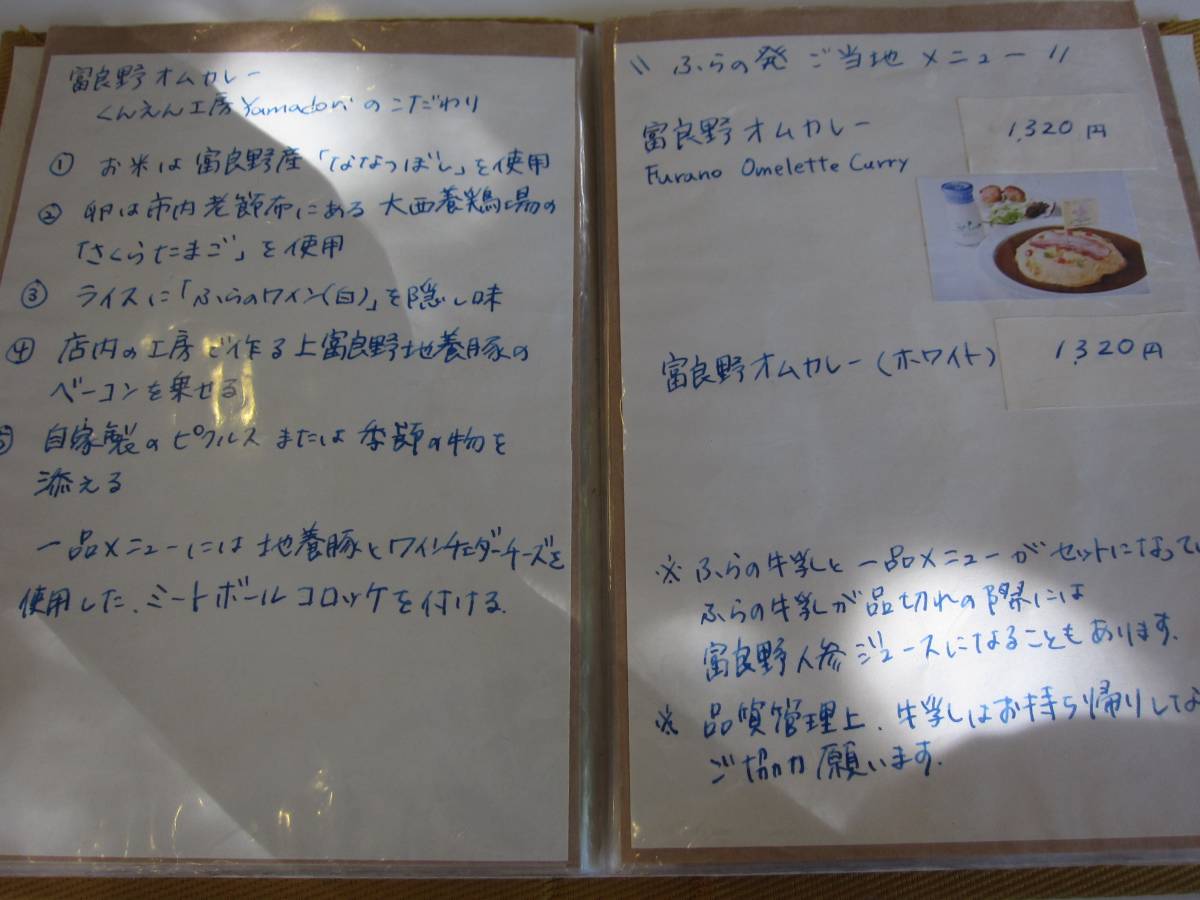 富良野オムカレー
くんえん工房Yamadoriのこだわり
① お米は富良野産「ななつぼし」を使用
② 卵は市内老節布にある大西養鶏場の
「さくらたまご」を使用
③ ライスに「ふらのワイン(白)」を隠し味
④ 店内の工房で作る上富良野地養豚の
ベーコンを乗せる
自家製のピクルスまたは季節の物を
添える
一品メニューには地養豚とワインチェダーチーズを
使用した、ミートボールコロッケを付ける.
\\ ふらの発 ご当地メニュー //
富良野オムカレー 1,320円
Furano Omelette Curry
富良野オムカレー(ホワイト) 1,320円
※ ふらの牛乳と一品メニューがセットになってい
ふらの牛乳が品切れの際には
富良野人参ジュースになることもあります.
※ 品質管理上、牛乳はお持ち帰りしな
ご協力願います.